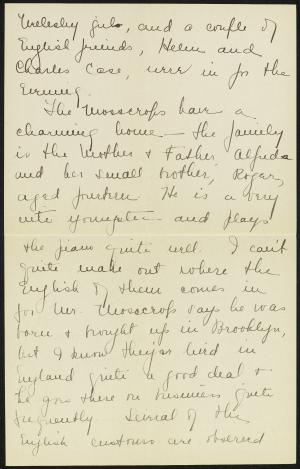 Wellesley girls, and a couple of
English friends, Helen and
Charles Case, were in for the
Evening.
The Mosscrops have a
charming home — the family
is the Mother & Father, Alfreda
and her small brother, Roger,
aged fourteen. He is a very
nice youngster and plays
the piano quite well. I can't
quite make out where the
English of them comes in
for Mr. Mosscrop says he was
born & brought up in Brooklyn,
but I know they've lived in
England quite a good deal &
he goes there on business quite
frequently. Several of the
English customs are observed